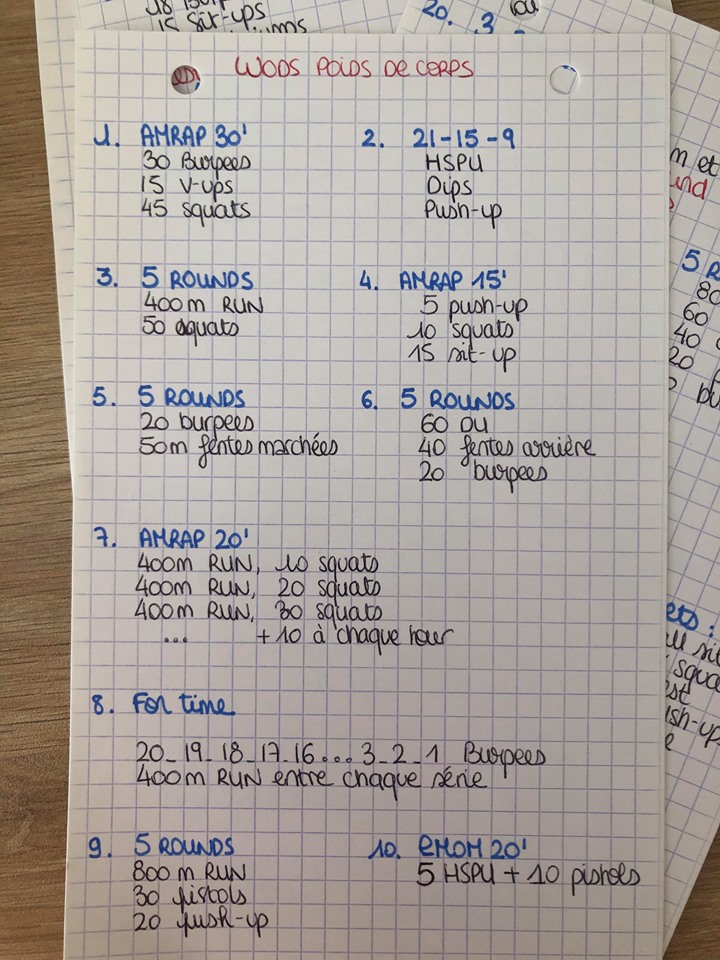 15 sit-ups
20. 3
WODS POIDS DE CORPS
1. AMRAP 30'
30 Burpees
15 V-ups
45 squats
2. 21-15-9
HSPU
Dips
Push-up
3. 5 ROUNDS
400m RUN
50 squats
4. AMRAP 15'
5 push-up
10 squats
15 sit-up
5. 5 ROUNDS
20 burpees
50m fentes marchées
6. 5 ROUNDS
60 ou
40 fentes arrière
20 burpees
7. AMRAP 20'
400m RUN, 10 squats
400m RUN, 20 squats
400m RUN, 30 squats
... +10 à chaque tour
8. For time
20_19_18_17_16...3_2_1 Burpees
400m RUN entre chaque série
9. 5 ROUNDS
800 m RUN
30 pistols
20 push-up
10. EMOM 20'
5 HSPU + 10 pistols
m et
5 R
80
60
40
20